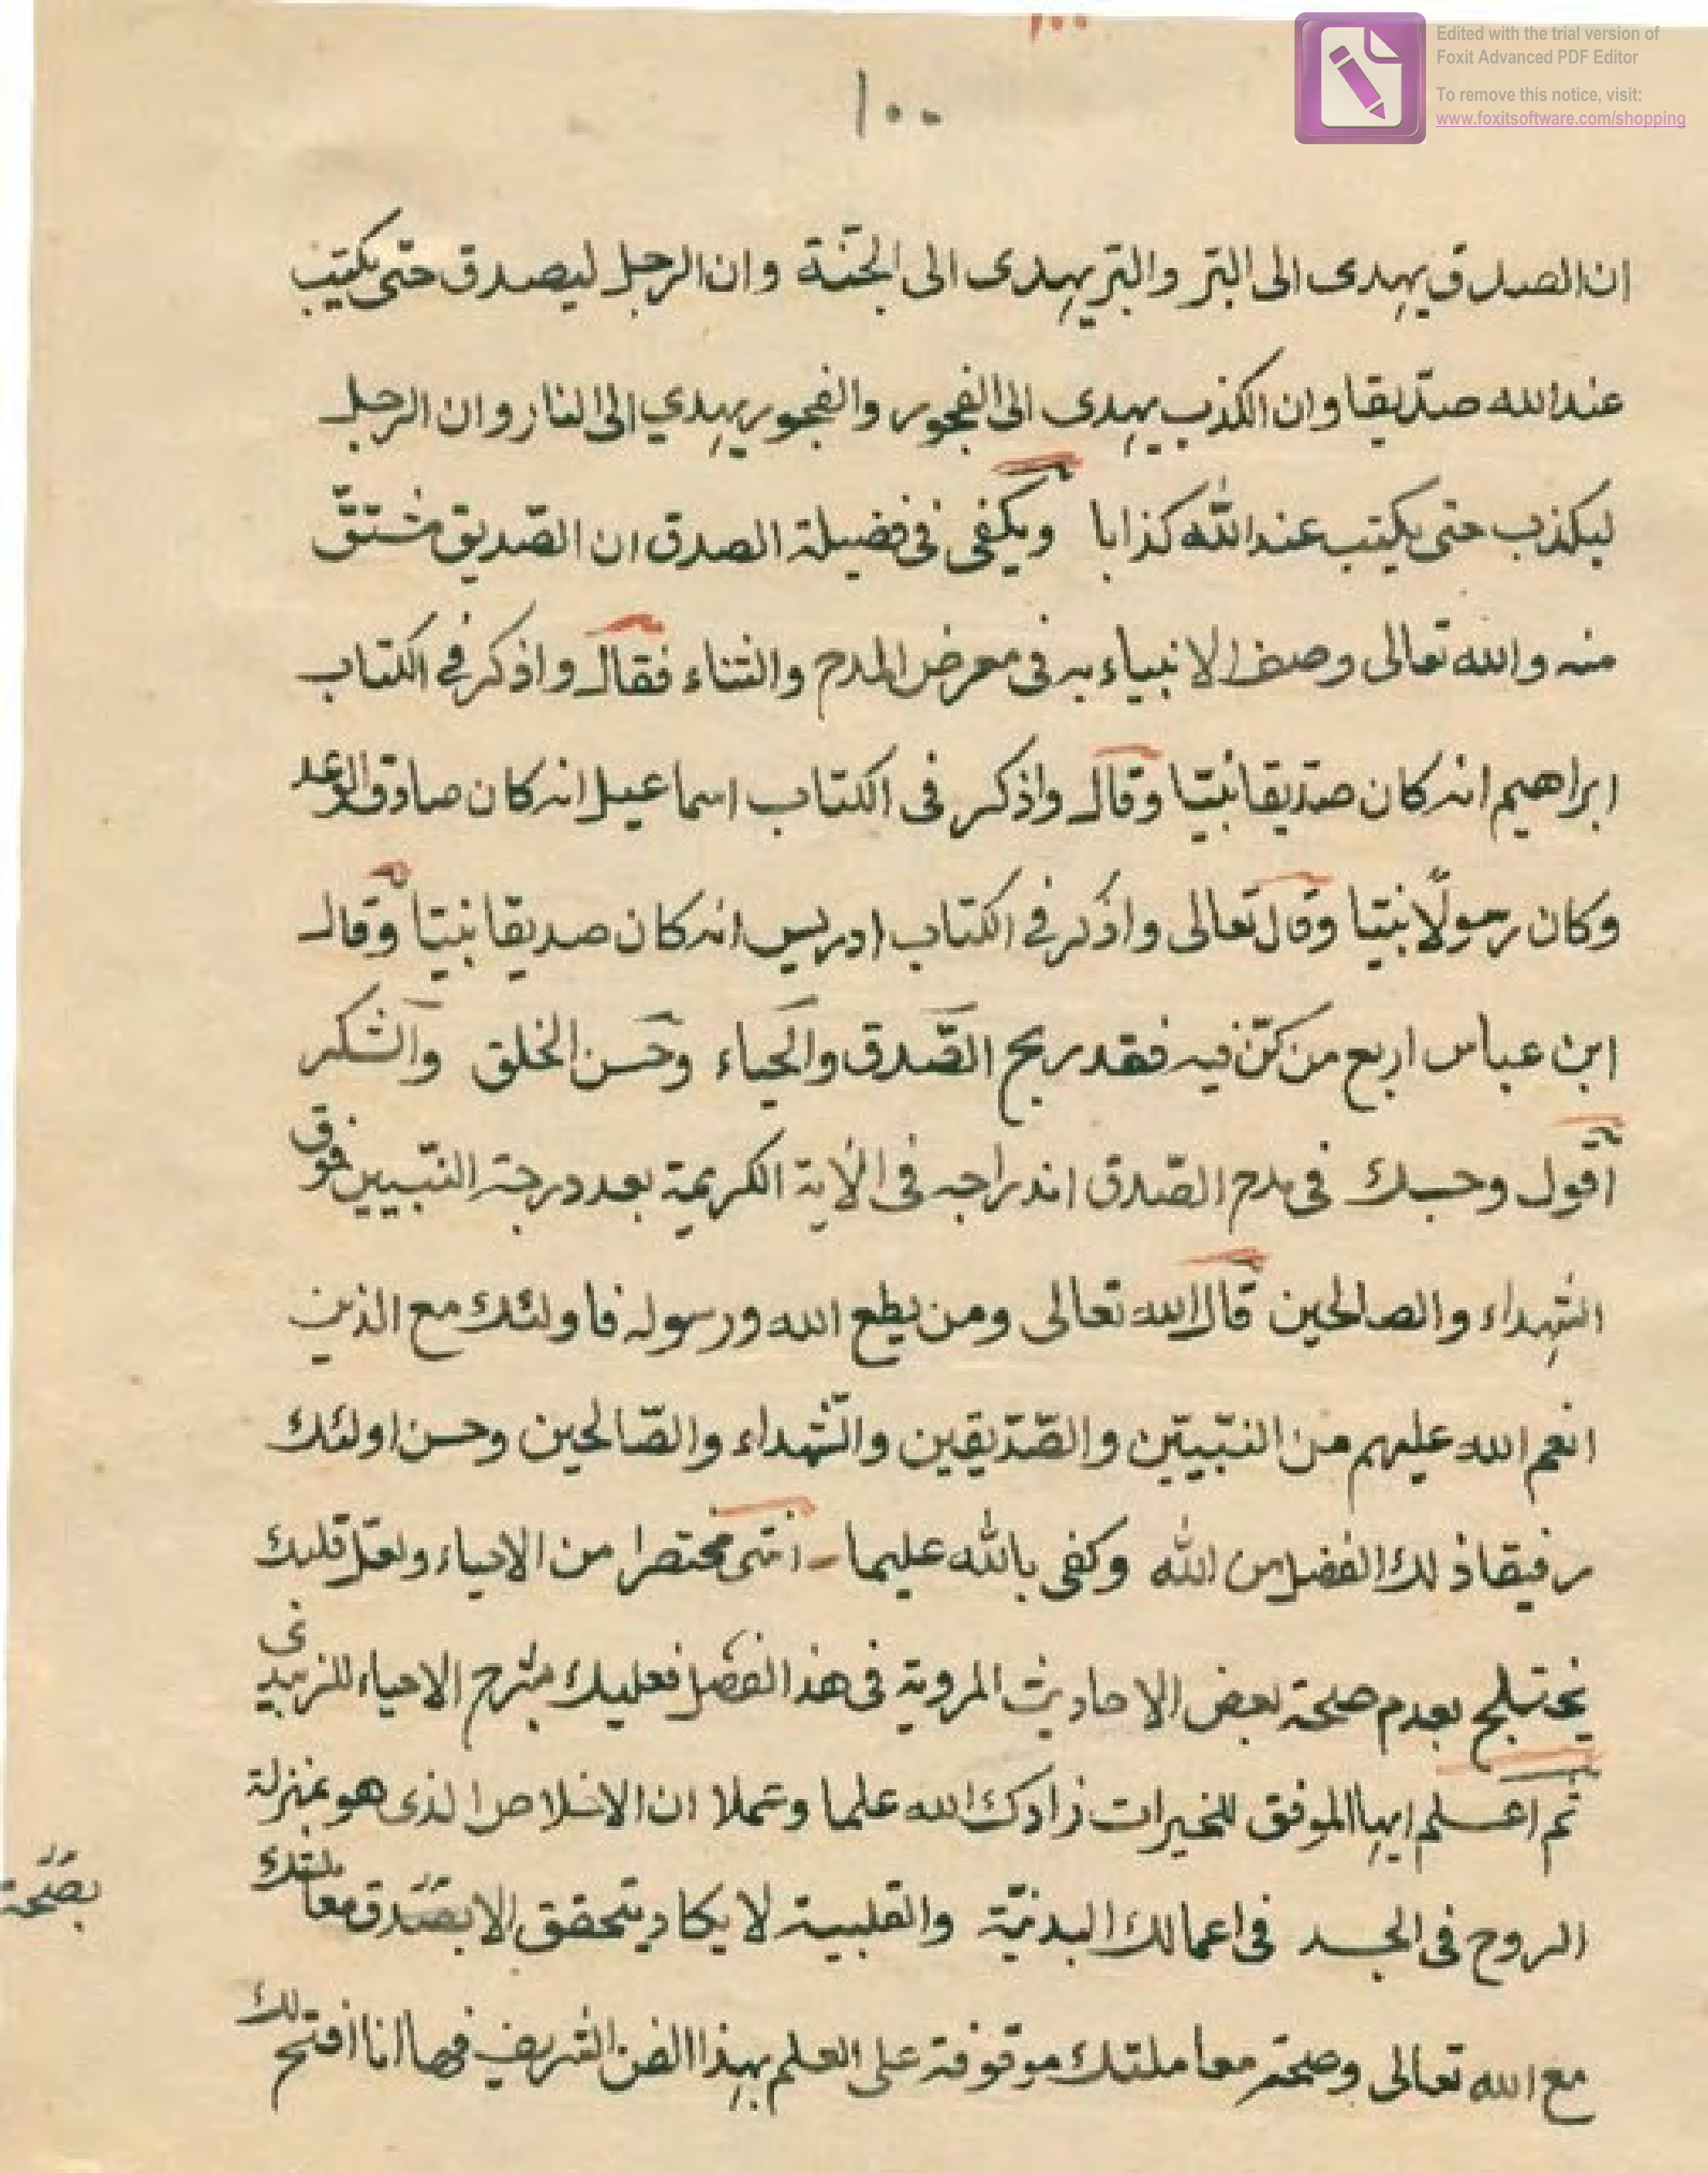 ١٠٠
Edited with the trial version of
Foxit Advanced PDF Editor
To remove this notice, visit:
www.foxitsoftware.com/shopping
١٠٠
ان الصدق يهدى الى البّر والبّر يهدى الى الجنّة وان الرجل ليصدق حتّى يكتب
عند الله صدّيقا وان الكذب يهدى الى الفجور والفجور يهدي الى النار وان الرجل
ليكذب حتى يكتب عند الله كذابا ويكفى فى فضيلة الصدق ان الصّديق مشتقّ
منه والله تعالى وصف الانبياء به فى معرض المدح والثناء فقال واذكر في الكتاب
ابراهيم انه كان صدّيقا نبيّا وقال واذكر فى الكتاب اسماعيل انه كان صادق الوعد
وكان رسولًا نبيّا وقال تعالى واذكر في الكتاب ادريس انه كان صديقا نبيّا وقال
ابن عباس اربع من كنّ فيه فقد ربح الصّدق والحياء وحسن الخلق والشكر
اقول وحسبك فى مدح الصّدق اندراجه فى الأية الكريمة بعد درجة النّبيين فوق
الشهداء والصالحين قال الله تعالى ومن يطع الله ورسوله فاولئك مع الذين
انعم الله عليهم من النّبيّين والصّدّيقين والشّهداء والصّالحين وحسن اولئك
رفيقا ذلك الفضل من الله وكفى بالله عليما ـ انتهى مختصرا من الاحياء ولعلّ قلبك
يختلج بعدم صحة بعض الاحاديث المروية فى هذا الفصل فعليك بشرح الاحياء للزبيدى
ثم اعلم ايها الموفق للخيرات زادك الله علما وعملا ان الاخلاص الذى هو بمنزلة
الروح فى الجسد فى اعمالك البدنيّة والقلبية لا يكاد يتحقق الا بصدق معاملتك
بصحة
مع الله تعالى وصحة معاملتك موقوفة على العلم بهذا الفن الشريف فها انا افتح لك